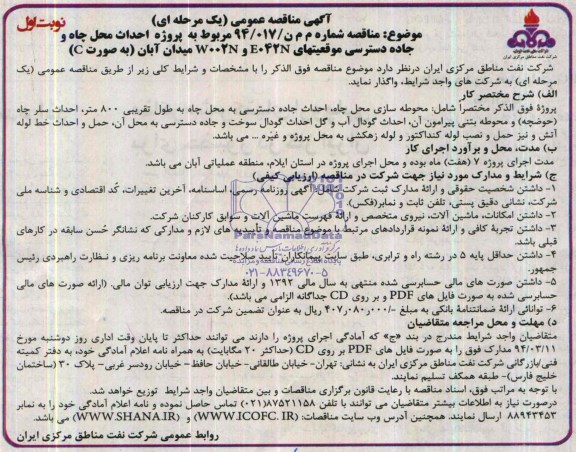 نوبت اول
آگهی مناقصه عمومی (یک مرحله ای)
موضوع: مناقصه شماره م م ن/۹۴/۰۱۷ مربوط به پروژه احداث محل چاه و
جاده دسترسی موقعیتهای E۰۴۲N و W۰۰۲N میدان آبان (به صورت C)
شرکت نفت مناطق مرکزی ایران درنظر دارد موضوع مناقصه فوق الذکر را با مشخصات و شرایط کلی زیر از طریق مناقصه عمومی (یک
مرحله ای) به شرکت های واجد شرایط، واگذار نماید.
الف) شرح مختصر کار
پروژۀ فوق الذکر مختصراً شامل: محوطه سازی محل چاه، احداث جاده دسترسی به محل چاه به طول تقریبی ۸۰۰ متر، احداث سلر چاه
(حوضچه) و محوطه بتنی پیرامون آن، احداث گودال آب و گل احداث گودال سوخت و جاده دسترسی به محل آن، حمل و احداث خط لوله
آتش و نیز حمل و نصب لوله کنداکتور و لوله زهکشی به محل پروژه و غیره ... می باشد.
ب) مدت، محل و برآورد اجرای کار
مدت اجرای پروژه ۷ (هفت) ماه بوده و محل اجرای پروژه در استان ایلام، منطقه عملیاتی آبان می باشد.
ج) شرایط و مدارک مورد نیاز جهت شرکت در مناقصه (ارزیابی کیفی)
۱- داشتن شخصیت حقوقی و ارائۀ مدارک ثبت شرکت شامل آگهی روزنامه رسمی، اساسنامه، آخرین تغییرات، کُد اقتصادی و شناسه ملی
شرکت، نشانی دقیق پستی، تلفن ثابت و نمابر(فکس).
۲- داشتن امکانات، ماشین آلات، نیروی متخصص و ارائۀ فهرست ماشین آلات و سوابق کارکنان شرکت.
۳- داشتن تجربۀ کافی و ارائۀ نمونه قراردادهای مرتبط با موضوع مناقصه و تأییدیه های لازم و مدارکی که نشانگر حُسن سابقه در کارهای
قبلی باشد.
۴- داشتن حداقل پایه ۵ در رشته راه و ترابری، طبق سایت پیمانکاران تأیید صلاحیت شده معاونت برنامه ریزی و نـظارت راهبردی رئیس
جمهور.
۵- داشتن صورت های مالی حسابرسی شده منتهی به سال مالی ۱۳۹۲ و ارائۀ مدارک جهت ارزیابی توان مالی. (ارائه صورت های مالی
حسابرسی شده به صورت فایل های PDF و بر روی CD جداگانه الزامی می باشد).
۶- توانائی ارائۀ ضمانتنامۀ بانکی به مبلغ -/۴۰۷٫۰۸۰٫۰۰۰ ریال به عنوان تضمین شرکت در مناقصه.
د) مهلت و محل مراجعه متقاضیان
متقاضیان واجد شرایط مندرج در بند «ج» که آمادگی اجرای پروژه را دارند می توانند حداکثر تا پایان وقت اداری روز دوشنبه مورخ
۹۴/۰۳/۱۱ مدارک فوق را به صورت فایل های PDF بر روی CD (حداکثر ۲۰ مگابایت) به همراه نامه اعلام آمادگی خود، به دفتر کمیته
فنی/بازرگانی شرکت نفت مناطق مرکزی ایران به نشانی: تهران- خیابان طالقانی- خیابان حافظ – خیابان رودسر غربی- پلاک ۳۰ (ساختمان
خلیج فارس)- طبقه همکف تسلیم نمایند.
با توجه به مراتب فوق، اسناد مناقصه با رعایت قانون برگزاری مناقصات و بین متقاضیان واجد شرایط توزیع خواهد شد.
درصورت نیاز به اطلاعات بیشتر متقاضیان می توانند با تلفن ۸۷۵۲۱۱۵۸(۰۲۱) تماس حاصل نموده و نامه اعلام آمادگی خود را به نمابر
۸۸۹۴۳۴۵۳ ارسال نمایند. همچنین آدرس وب سایت مناقصات: (WWW.ICOFC.IR) و (WWW.SHANA.IR) می باشد.
روابط عمومی شرکت نفت مناطق مرکزی ایران
ParsNamadData
۰۲۱-۸۸۳۴۹۶۷۰-۵